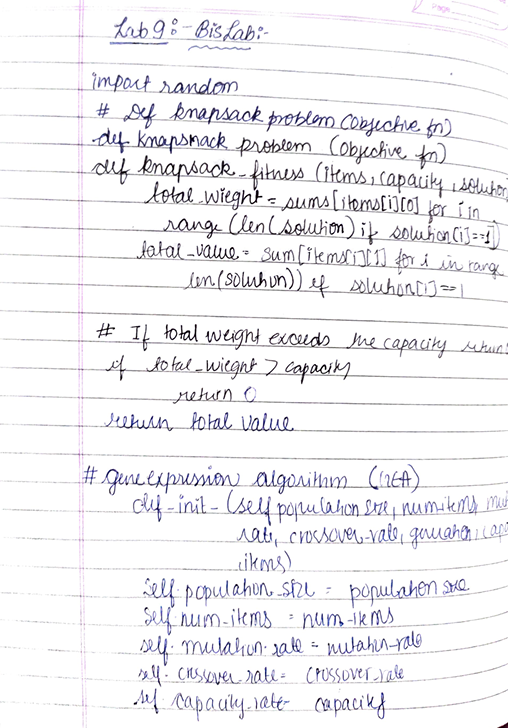 Lab 9:- BisLab:-
import random
# Def knapsack problem (objective fn)
def knapsnack problem (objective fn)
def knapsack_fitness (items, capacity, solution
total_wieght = sums[items[i][0] for i in
range (len(solution) if solution[i]==1]
total_value = sum[items[i][1] for i in range
len(solution)) if solution[i]==1
# If total weight exceeds the capacity return
if total_wieght > capacity
return 0
return total value
# gene expression algorithm (
def -init- (self population size, num items mut
rate, crossover-rate, generation, capa
items)
Self. population_size = population size
Self num-items = num-items
self. mutation. rate = mutation-rate
self. crossover_rate = crossover_rate
self. capacity_rate- capacity